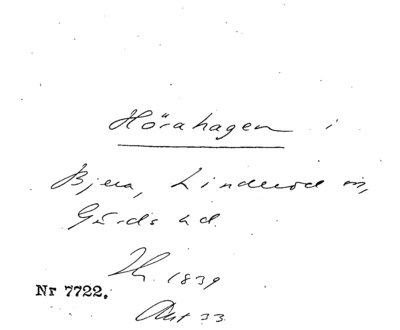 Hörahagen i
Bjera, Linderod sn,
Gärds hd.
Th. 1839
Nr 7722.
Akt 33